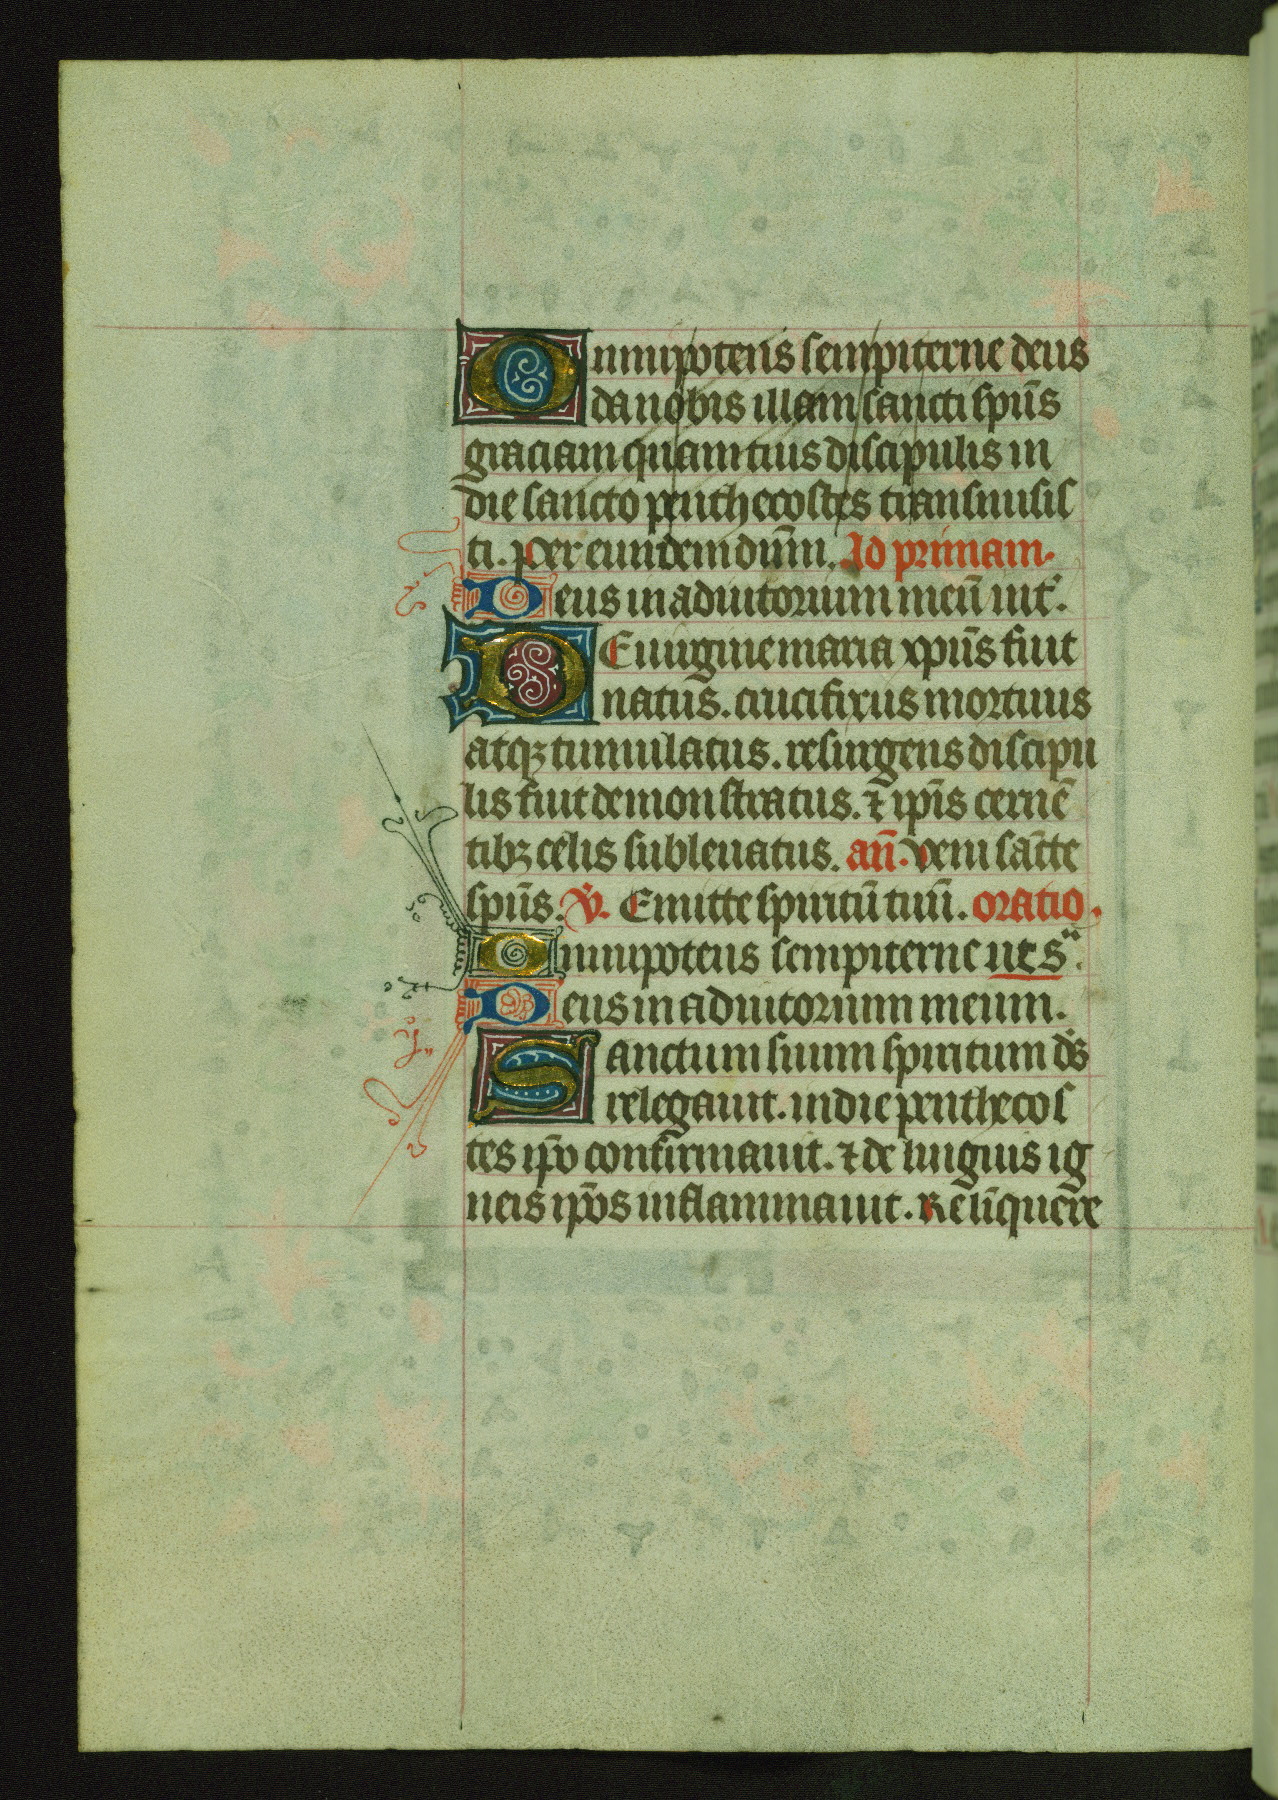 Omnipotens sempiterne deus
da nobis illam sancti sp̄us
graciam quam tuis discipulis in
die sancto penthecostes transmisis
ti. Per eundem dn̄m. Ad primam.
Deus in adiutorium meū int̄.
DE uirgine maria xp̄us fuit
natus. crucifixus mortuus
atqꝫ tumulatus. resurgens discipu
lis fuit demonstratus. ⁊ ip̄is cernē
tibꝫ celis subleuatus. an̄. Veni sāctе
sp̄us. V̄. Emitte spiritū tuū. oratio.
Omnipotens sempiterne ut s.
Deus in adiutorium meum.
Sanctum suum spiritum ds̄
relegauit. in die penthecos
tes ip̄o confirmauit. ⁊ de linguis ig
neis ip̄os inflammauit. Relīquere